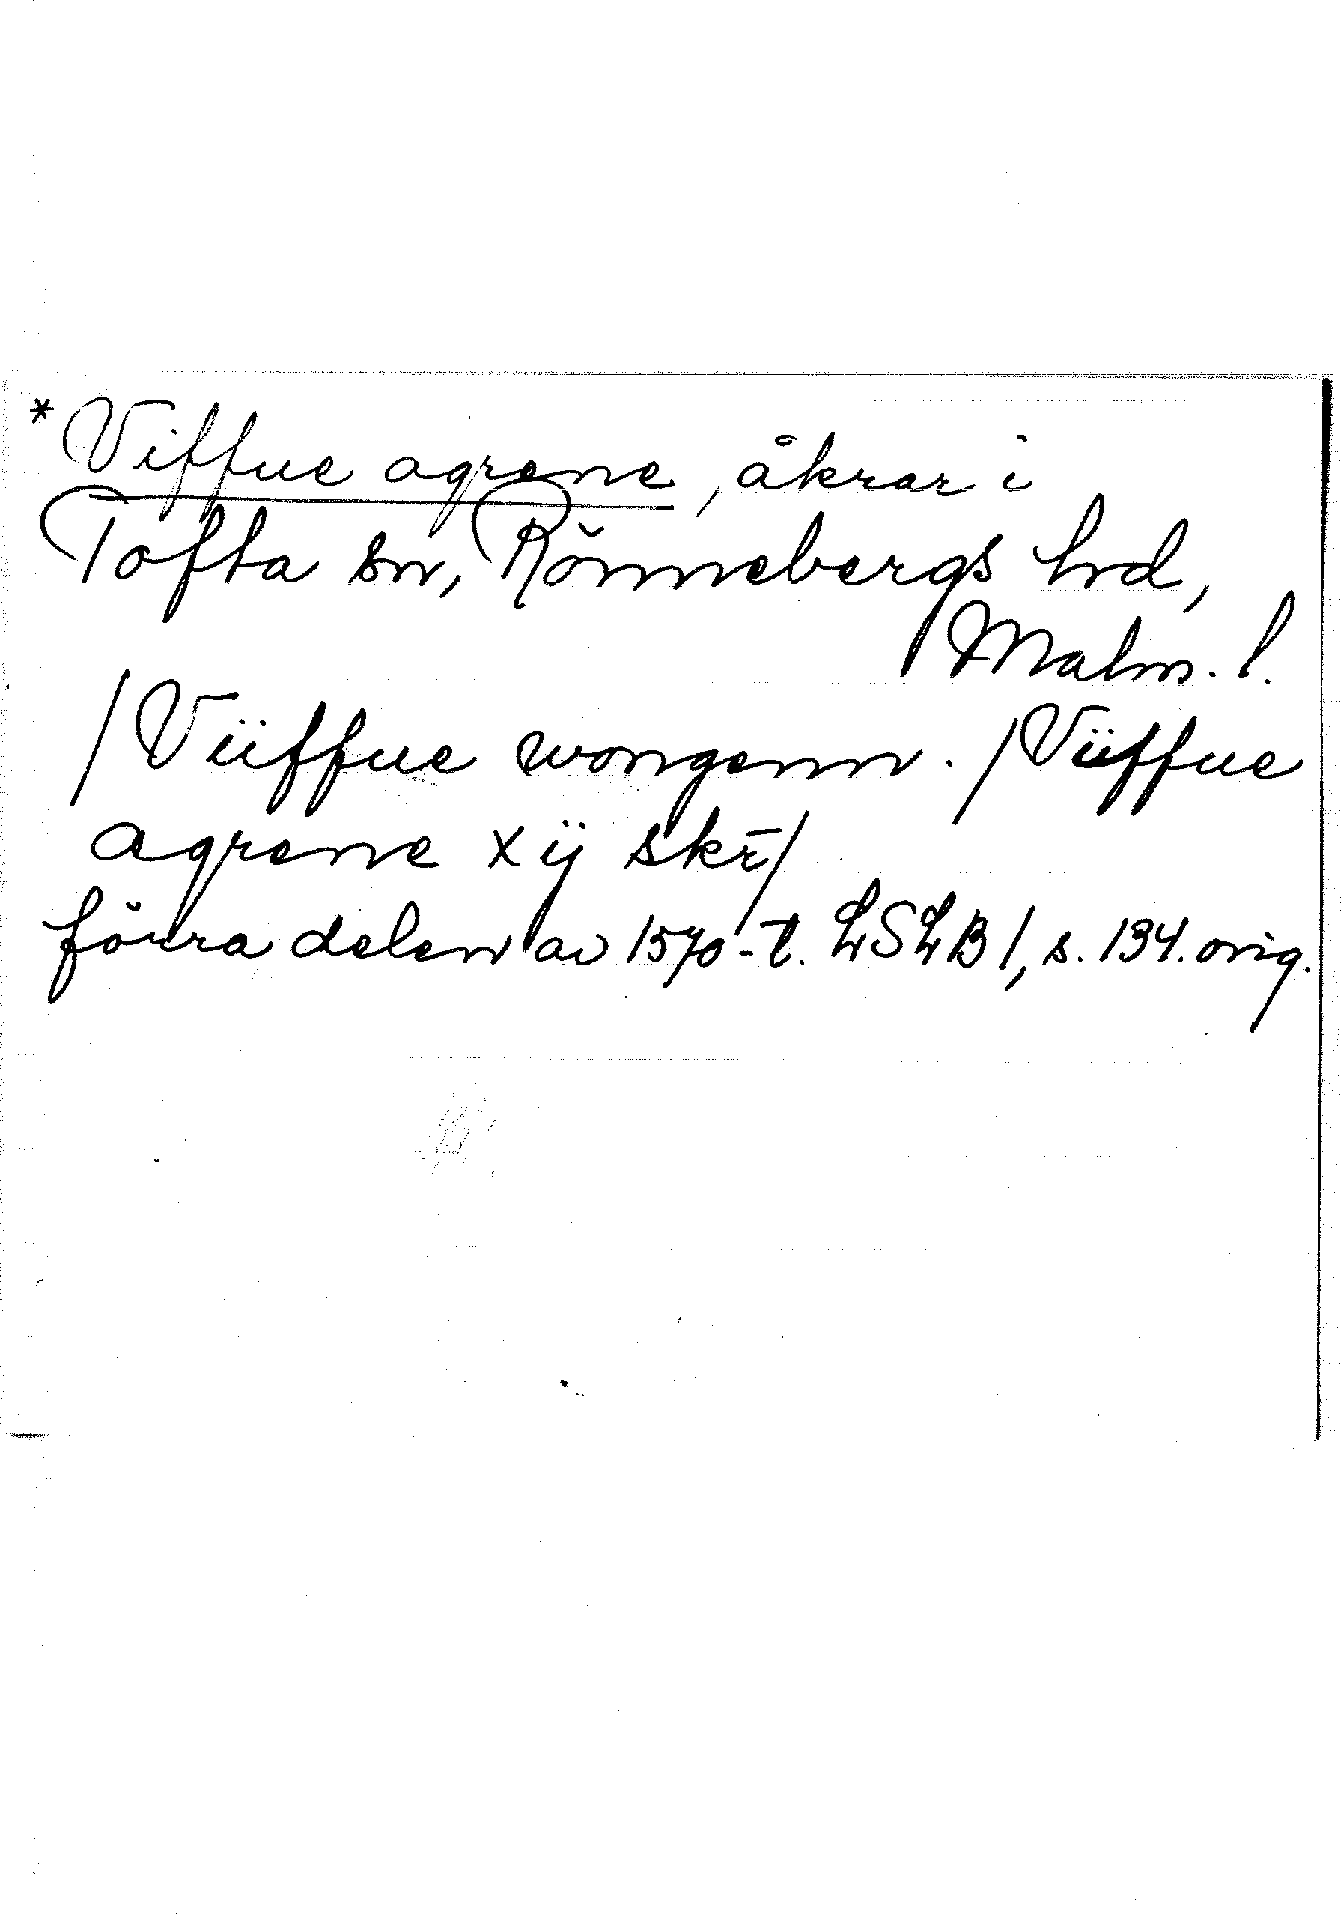 *Viffue agrene, åkrar i
Tofta sn, Rönnebergs hrd,
Malm. l.
/Viiffue wongenn. /Viiffue
agrene xij skr̄/
förra delen av 1570-t. LSLB 1, s. 134. orig.